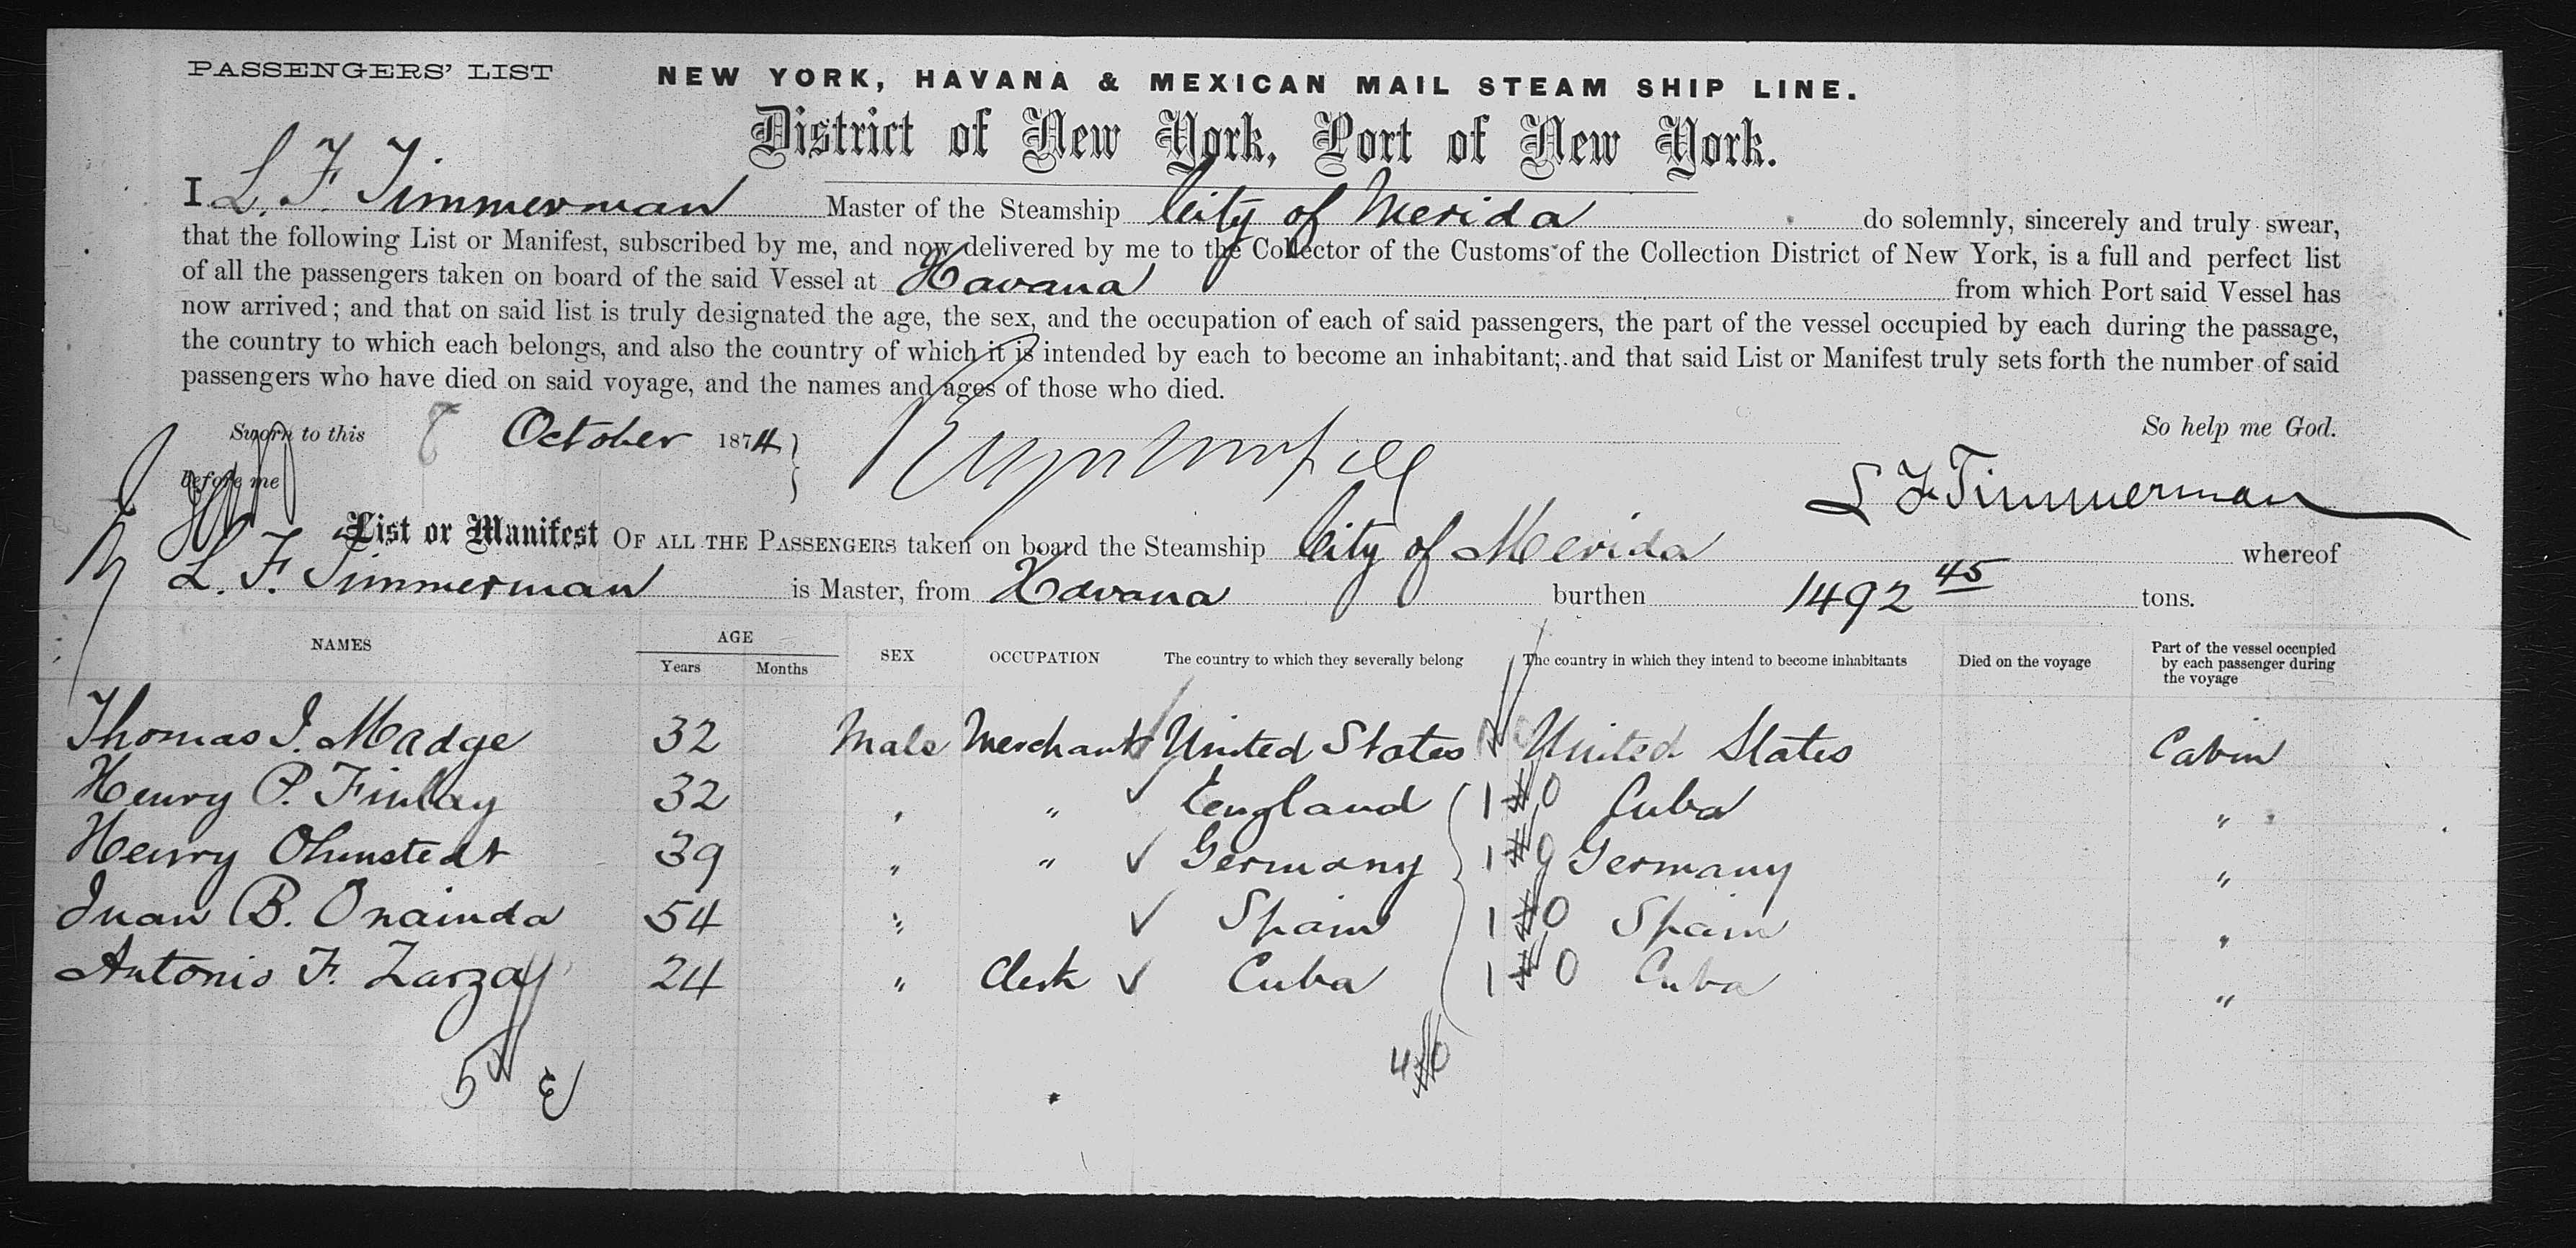 PASSENGERS' LIST
NEW YORK, HAVANA & MEXICAN MAIL STEAM SHIP LINE.
District of New York, Port of New York.
I L. F. Timmerman Master of the Steamship City of Merida do solemnly, sincerely and truly swear,
that the following List or Manifest, subscribed by me, and now delivered by me to the Collector of the Customs of the Collection District of New York, is a full and perfect list
of all the passengers taken on board of the said Vessel at Havana from which Port said Vessel has
now arrived; and that on said list is truly designated the age, the sex, and the occupation of each of said passengers, the part of the vessel occupied by each during the passage,
the country to which each belongs, and also the country of which it is intended by each to become an inhabitant; and that said List or Manifest truly sets forth the number of said
passengers who have died on said voyage, and the names and ages of those who died.
Sworn to this 8 October 1874 So help me God.
before me L F Timmerman
List or Manifest OF ALL THE PASSENGERS taken on board the Steamship City of Merida whereof
L. F. Timmerman is Master, from Havana burthen 1492 45 tons.
NAMES AGE Years Months SEX OCCUPATION The country to which they severally belong The country in which they intend to become inhabitants Died on the voyage Part of the vessel occupied by each passenger during the voyage
Thomas J. Madge 32 Male Merchant United States United States Cabin
Henry P. Finlay 32 " " England 1 0 Cuba "
Henry Ohmstedt 39 " " Germany 1 0 Germany "
Juan B. Onainda 54 " Spain 1 0 Spain "
Antonio F. Zarza 24 " Clerk Cuba 1 0 Cuba "
5
4 0